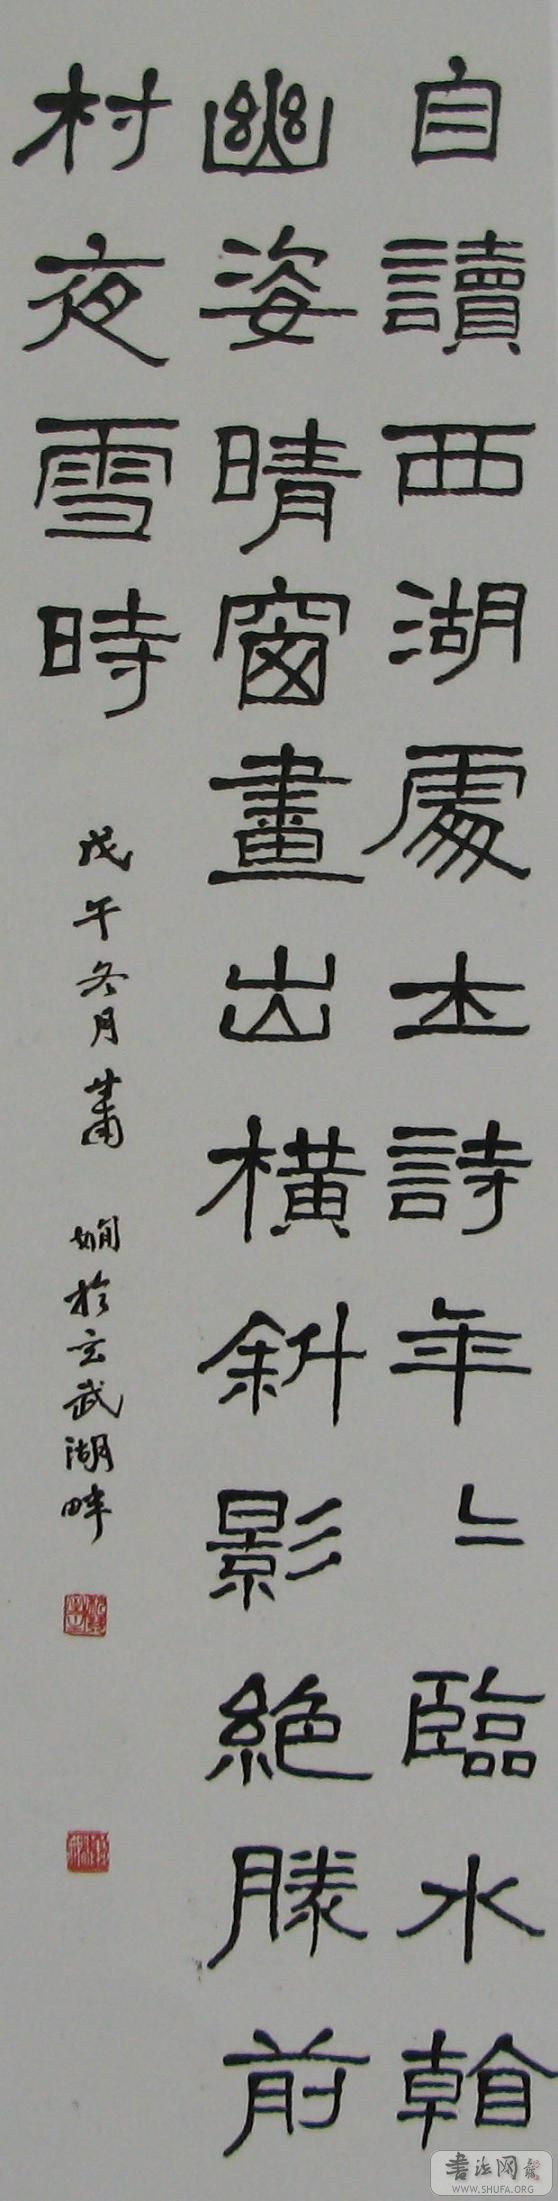 自讀西湖處士詩年〻臨水看
幽姿晴窗畫出橫斜影絕勝前
村夜雪時
戊午冬月蕭嫻於玄武湖畔
書法网
WWW.SHUFA.ORG